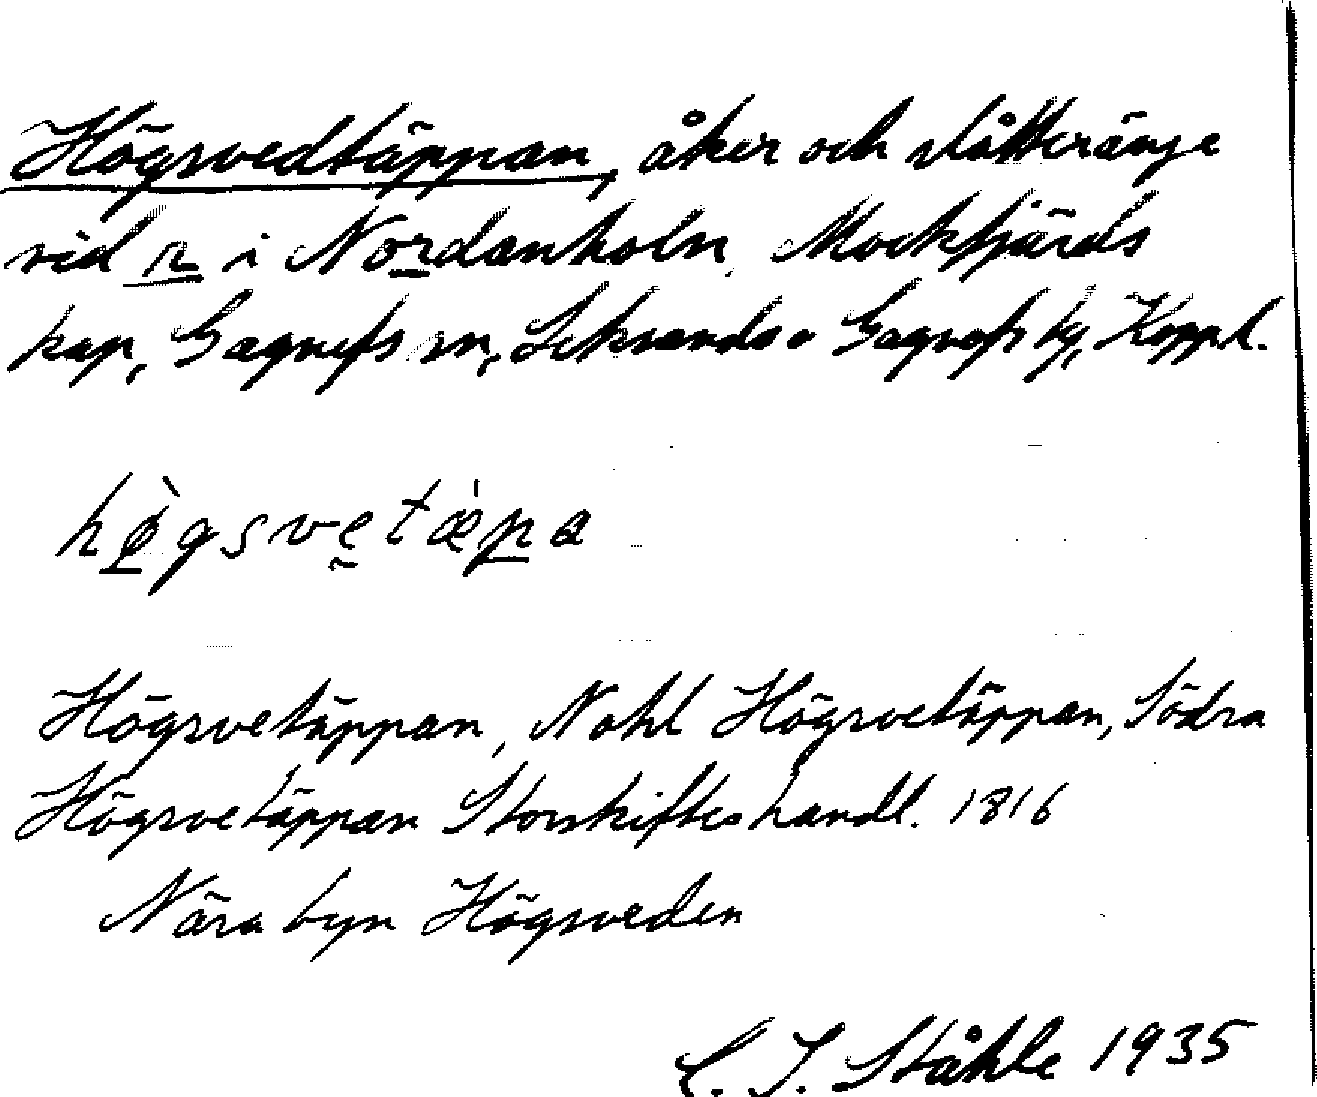 Högsvedtäppan, åker och slåtteränge
vid r i Nordanholn, Mockfjärds
kap, Gagnefs sn, Leksands o Gagnefs tg, Koppl.
hø̀gsvetæ̀pa
Högsvetäppan, Nohl Högsvetäppan, Södra
Högsvetäppan Storskifteshandl. 1816
Nära byn Högsveden
C. I. Ståhle 1935